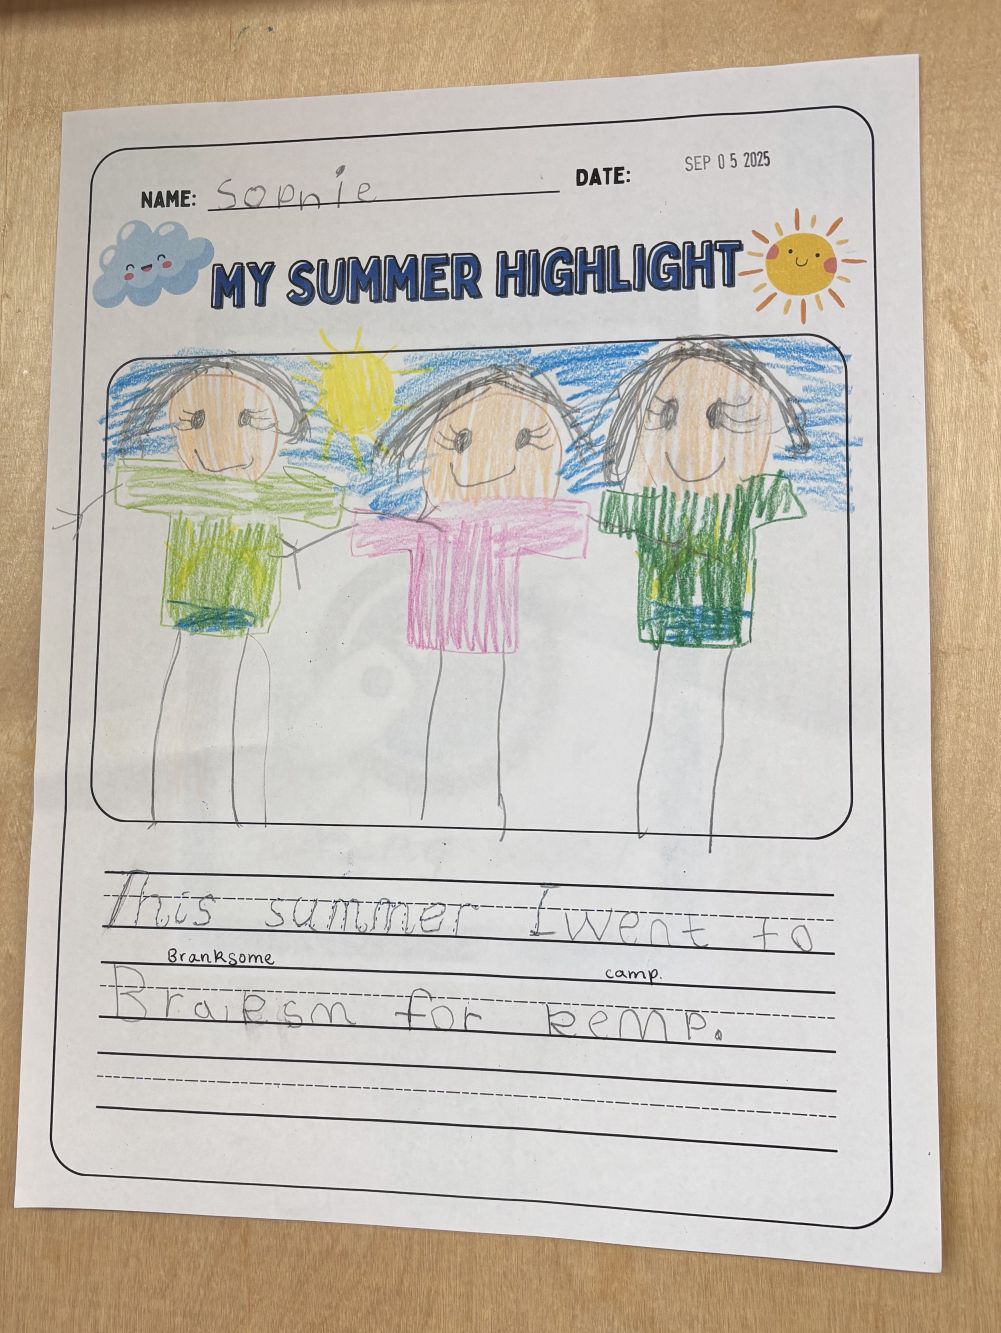 NAME: Sophie
DATE: SEP 05 2025
MY SUMMER HIGHLIGHT
This summer I went to
Branksome camp.
Braiksm for kemp.